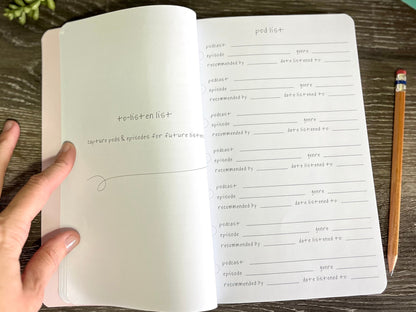 to-listen list
capture pods & episodes for future listen
pod list
podcast
episode genre
recommended by date listened to
podcast
episode genre
recommended by date listened to
podcast
episode genre
recommended by date listened to
podcast
episode genre
recommended by date listened to
podcast
episode genre
recommended by date listened to
podcast
episode genre
recommended by date listened to
podcast
episode genre
recommended by date listened to